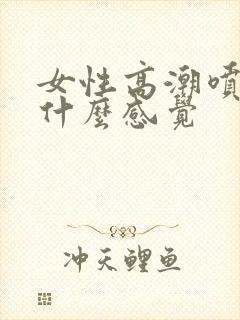 女性高潮噴
什麼感覺
冲天鲤鱼